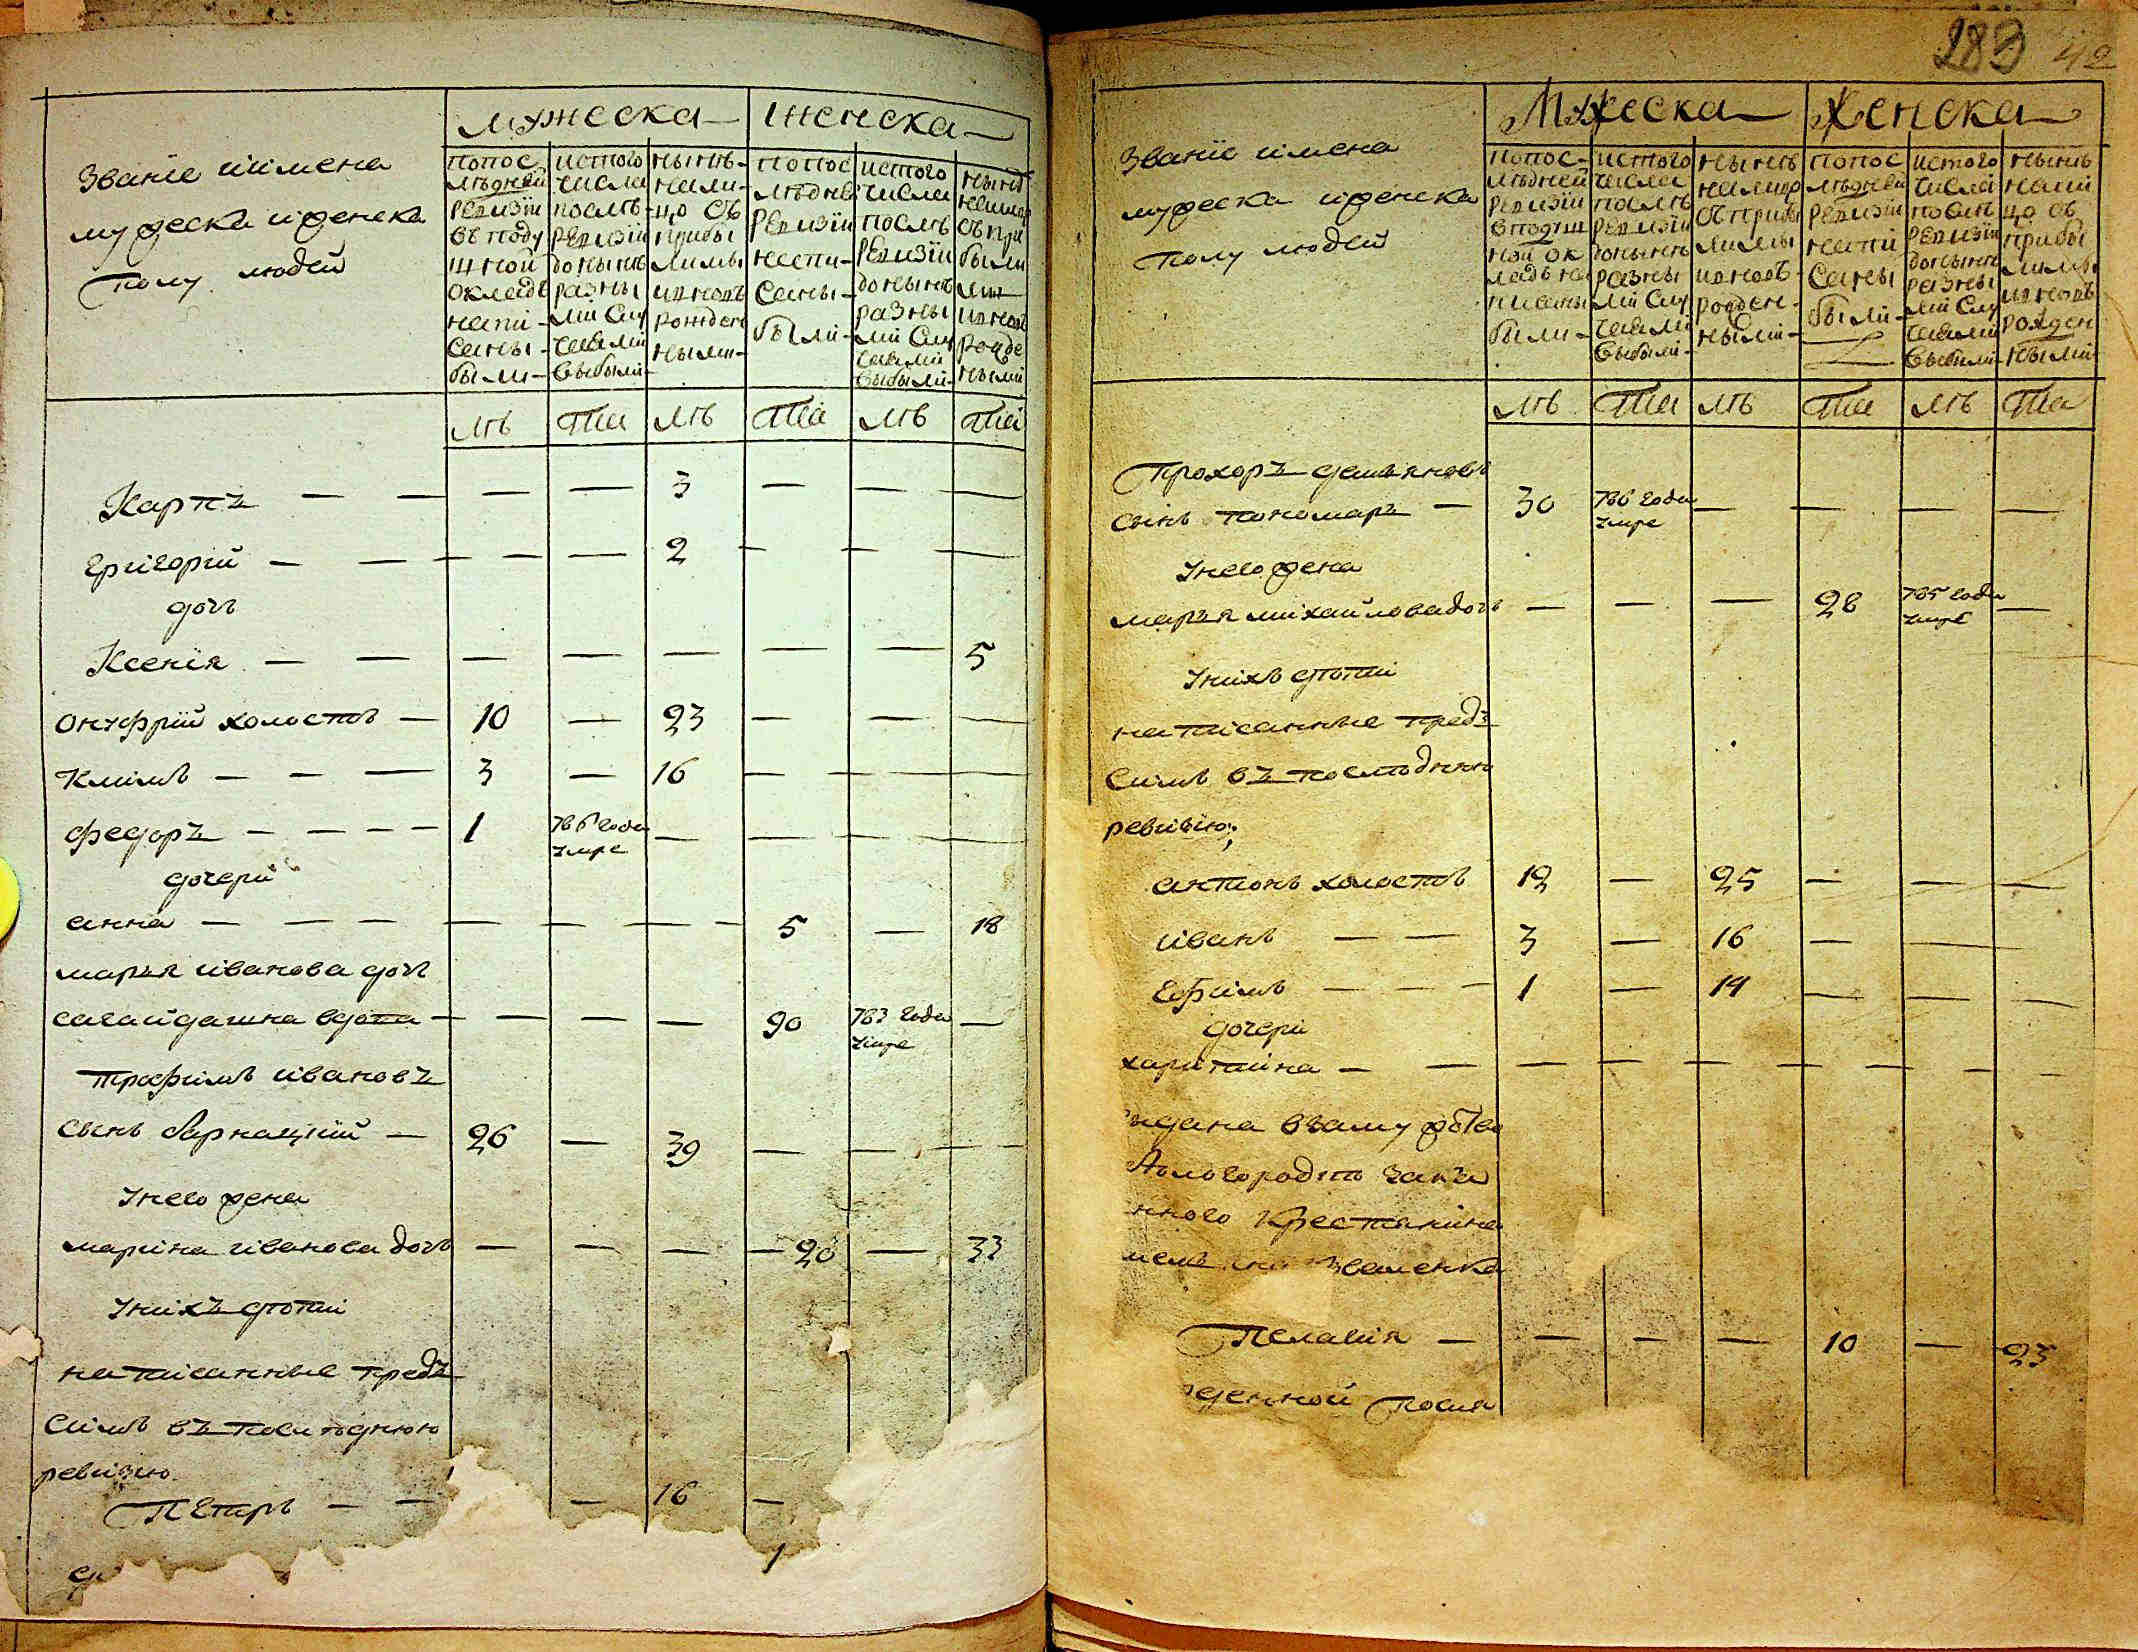 283 42
мужеска женска
Званїе иимена
мужеска иженска
полу людей
попос
лѣдней
ревизїи
въ поду
шной
окладѣ
напи-
саны-
были-
истого
числа
послѣ-
ревизїи
донынѣ
разны
ми слу
чаями
выбыли-
нынѣ-
нали-
цо съ
прибы
лымы
ивновъ
рожден
ными-
попос
лѣдней
ревизїи
напи-
саны-
были-
истого
числа
послѣ
ревизїи
донынѣ
разны
ми слу
чаями
выбыли-
нынѣ
налицо
съ при
были
ми
ивновъ
рожде
ными
лѣ та лѣ та лѣ та
Карпъ — — — — 3 — — —
Григорїй — — — — 2 — — —
дочь
Ксенїя — — — — — — — 5
онуфрїй холостъ — 10 — 23 — — —
климъ — — — 3 — 16 — — —
федоръ — — — — 1 786 года умре — — — —
дочери
анна — — — — — — 5 — 18
марья иванова дочь
сагайдашна вдова — — — — 90 783 года умре —
трофимъ ивановъ
сынъ барнацкїй — 26 — 39 — — —
унего жена
марина иванова дочь — — — 20 — 33
унихъ дѣти
написанные предъ
симъ въ последнюю
ревизию
Петръ — — — 16 —
Мужеска Женска
Званїе иимена
мужеска иженска
полу людей
попос-
лѣдней
ревизїи
вподуш
ной ок
ладъ на
писаны
были-
истого
числа
послѣ
ревизїи
донынѣ
разны
ми слу
чаями
выбыли-
нынѣ
налицо
съ прибы
лымы
ивновъ-
рожден-
ными-
попос
лѣдней
ревизїи
напи
саны
были-
истого
числа
послѣ
ревизїи
донынѣ
разны
ми слу
чаями
выбыли-
нынѣ
нали
цо съ
прибы
лыми
ивновъ
рожден
ными
лѣ та лѣ та лѣ та
Прохоръ демьяновъ
сынъ пономарь — 30 786 года умре — — — —
унего жена
марья михайлова дочь — — — 28 785 года умре —
унихъ дѣти
написанные предъ
симъ въ последнюю
ревизїю;
антонъ холостъ 12 — 25 — — —
иванъ — — 3 — 16 — —
Ефимъ — — — 1 — 14 — — —
дочери
харитина — — — — — — — —
ыдана взамужство
крестянина
Пелагия — — — — 10 — 23
денной посля